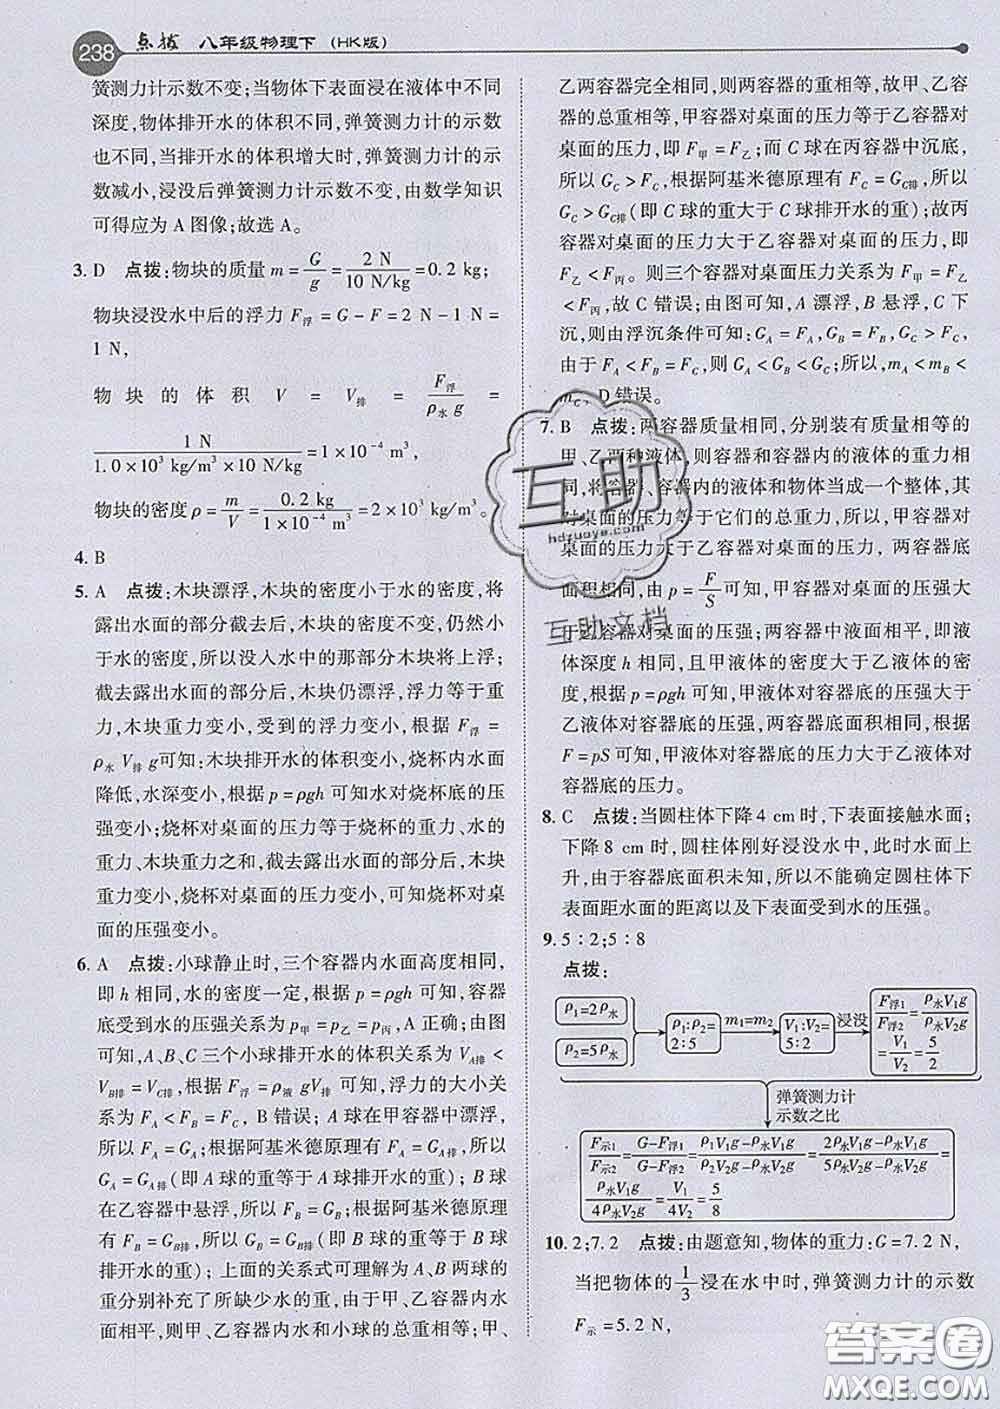 238 点拨 八年级物理下 (HK版)
簧测力计示数不变;当物体下表面浸在液体中不同
深度,物体排开水的体积不同,弹簧测力计的示数
也不同,当排开水的体积增大时,弹簧测力计的示
数减小,浸没后弹簧测力计示数不变,由数学知识
可得应为 A 图像;故选 A。
3. D 点拨:物块的质量 m = G/g = 2 N/10 N/kg = 0.2 kg;
物块浸没水中后的浮力 F浮 = G - F = 2 N - 1 N =
1 N,
物块的体积 V = V排 = F浮/ρ水 g =
1 N/1.0×10³ kg/m³×10 N/kg = 1×10⁻⁴ m³,
物块的密度 ρ = m/V = 0.2 kg/1×10⁻⁴ m³ = 2×10³ kg/m³。
4. B
5. A 点拨:木块漂浮,木块的密度小于水的密度,将
露出水面的部分截去后,木块的密度不变,仍然小
于水的密度,所以没入水中的那部分木块将上浮;
截去露出水面的部分后,木块仍漂浮,浮力等于重
力,木块重力变小,受到的浮力变小,根据 F浮 =
ρ水 V排 g可知:木块排开水的体积变小,烧杯内水面
降低,水深变小,根据 p = ρgh 可知水对烧杯底的压
强变小;烧杯对桌面的压力等于烧杯的重力、水的
重力、木块重力之和,截去露出水面的部分后,木块
重力变小,烧杯对桌面的压力变小,可知烧杯对桌
面的压强变小。
6. A 点拨:小球静止时,三个容器内水面高度相同,
即 h 相同,水的密度一定,根据 p = ρgh 可知,容器
底受到水的压强关系为 p甲 = p乙 = p丙, A 正确;由图
可知,A、B、C 三个小球排开水的体积关系为 VA排
< VB排 = VC排,根据 F浮 = ρ液 gV排可知,浮力的大小关
系为 FA < FB = FC, B 错误; A 球在甲容器中漂浮,
所以 FA = GA;根据阿基米德原理有 FA = GA排,所以
GA = GA排(即 A 球的重等于 A 球排开水的重);B 球
在乙容器中悬浮,所以 FB = GB;根据阿基米德原理
有 FB = GB排,所以 GB = GB排(即 B 球的重等于 B 球
排开水的重);上面的关系式可理解为 A、B 两球的
重分别补充了所缺少水的重,由于甲、乙容器内水面
相平,则甲、乙容器内水和小球的总重相等;甲、
乙两容器完全相同,则两容器的重相等,故甲、乙容
器的总重相等,甲容器对桌面的压力等于乙容器对
桌面的压力,即 F甲 = F乙;而 C 球在丙容器中沉底,
所以 GC > FC,根据阿基米德原理有 FC = GC排,所以
GC > GC排(即 C 球的重大于 C 球排开水的重);故丙
容器对桌面的压力大于乙容器对桌面的压力,即
F乙 < F丙。则三个容器对桌面压力关系为 F甲 = F乙
< F丙,故 C 错误;由图可知,A 漂浮,B 悬浮,C 下
沉,则由浮沉条件可知:GA = FA,GB = FB,GC > FC,
由于 FA < FB = FC,则 GA < GB < GC;所以,mA < mB <
mC,D 错误。
7. B 点拨:两容器质量相同,分别装有质量相等的
甲、乙两种液体,则容器和容器内的液体的重力相
同,将容器、容器内的液体和物体当成一个整体,其
对桌面的压力等于它们的总重力,所以,甲容器对
桌面的压力大于乙容器对桌面的压力,两容器底
面积相同,由 p = F/S 可知,甲容器对桌面的压强大
于乙容器对桌面的压强;两容器中液面相平,即液
体深度 h 相同,且甲液体的密度大于乙液体的密
度,根据 p = ρgh 可知,甲液体对容器底的压强大于
乙液体对容器底的压强,两容器底面积相同,根据
F = pS 可知,甲液体对容器底的压力大于乙液体对
容器底的压力。
8. C 点拨:当圆柱体下降 4 cm 时,下表面接触水面;
下降 8 cm 时,圆柱体刚好浸没水中,此时水面上
升,由于容器底面积未知,所以不能确定圆柱体下
表面距水面的距离以及下表面受到水的压强。
9. 5 : 2;5 : 8
点拨:
ρ1=2ρ水
ρ2=5ρ水
ρ1:ρ2=2:5
m1=m2
V1:V2=5:2
浸没
F浮1/F浮2 = ρ水V1g/ρ水V2g = V1/V2 = 5/2
弹簧测力计
示数之比
F示1/F示2 = G-F浮1/G-F浮2 = ρ1V1g-ρ水V1g/ρ2V2g-ρ水V2g = 2ρ水V1g-ρ水V1g/5ρ水V2g-ρ水V2g =
ρ水V1g/4ρ水V2g = V1/4V2 = 5/8
10. 2;7.2 点拨:由题意知,物体的重力:G = 7.2 N,
当把物体的 1/3 浸在水中时,弹簧测力计的示数
F示 = 5.2 N,
互助
hdzuoye.com
互助文档
答案圈
MXQE.COM